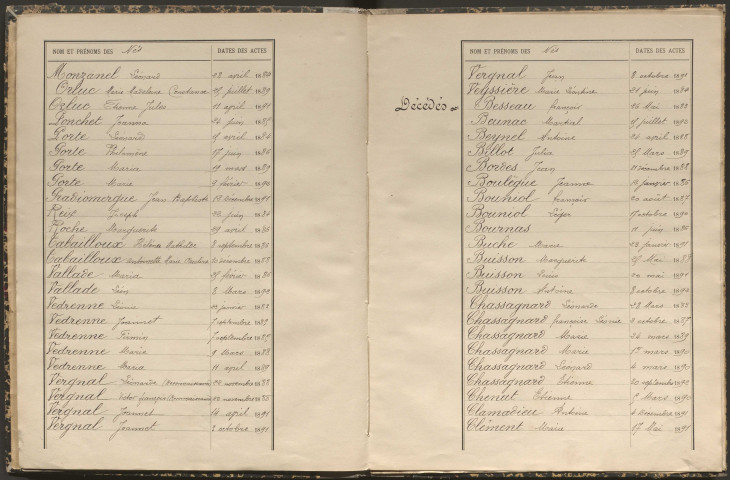 NOM ET PRÉNOMS DES Nés DATES DES ACTES
Monzanel Léonard 13 avril 1884
Orluc Marie Madeleine Constance 15 juillet 1889
Orluc Etienne Jules 11 avril 1891
Ponchet Jeanne 24 juin 1885
Porte Léonard 11 avril 1884
Porte Philomène 17 juin 1886
Porte Maria 19 mars 1889
Porte Marie 9 février 1890
Pradiomergue Jean Baptiste 18 novembre 1891
Reix Joseph 23 juin 1884
Roche Marguerite 29 avril 1886
Tabailloux Hélène Mathilde 8 septembre 1886
Tabailloux Antoinette Marie 20 novembre 1888
Vallade Maria 25 février 1886
Vallade Léon 8 Mars 1892
Vedrenne Léonie janvier 1883
Vedrenne Jeannet 7 septembre 1885
Vedrenne Firmin 7 septembre 1885
Vedrenne Marie 9 mars 1888
Vedrenne Maria 11 avril 1889
Vergnal Léonarde 20 novembre 1888
Vergnal Victor François 20 novembre 1888
Vergnal Jeannet 14 avril 1891
Vergnal Jeannet 8 octobre 1891
Décédés
NOM ET PRÉNOMS DES Nés DATES DES ACTES
Vergnal Jean 8 octobre 1891
Veyssière Marie 21 juin 1884
Besseau françois 16 Mai 1888
Beunac Martial 19 juillet 1892
Beynel Antoine 24 avril 1888
Billot Julie 25 Mars 1889
Bordes Jean 11 novembre 1888
Boulègue Jeanne 10 janvier 1886
Bouniol françois 20 août 1887
Bouniol Léger 17 octobre 1890
Bournas 11 juin 1886
Buche Marie 23 janvier 1891
Buisson Marguerite 27 Mai 1883
Buisson Louis 20 mai 1891
Buisson Antoine 8 octobre 1892
Chassagnard Léonarde 23 Mars 1883
Chassagnard françoise Léonie 4 octobre 1887
Chassagnard Marie 24 mars 1889
Chassagnard Marie 1er mars 1890
Chassagnard Léonard 4 mars 1890
Chassagnard Etienne 20 septembre 1892
Cheniet Etienne 8 Mars 1890
Clamadieu Antoine 4 novembre 1891
Clément Maria 17 Mai 1891